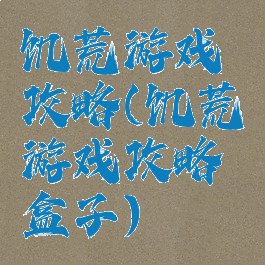 饥荒游戏
攻略(饥荒
游戏攻略
盒子)